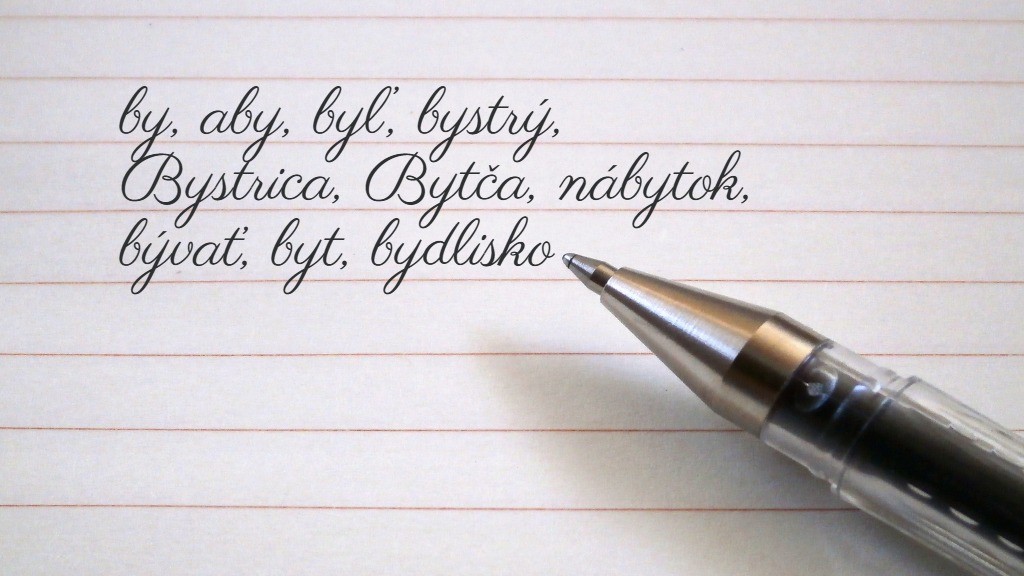 by, aby, byľ, bystrý,
Bystrica, Bytča, nábytok,
bývať, byt, bydlisko